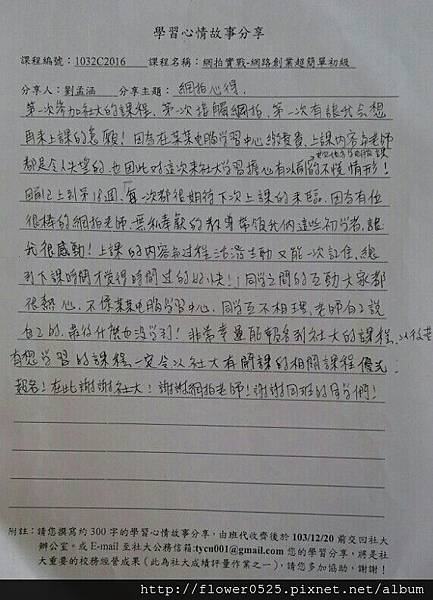 學習心情故事分享
課程編號：1032C2016 課程名稱：網拍實戰-網路創業超簡單初級
分享人：劉孟涵 分享主題：網拍心得.
第一次參加社大的課程、第一次接觸網拍、第一次有讓我會想
再來上課的意願！因為在某某電腦學習中心繳費、上課內容和老師
都是令人失望的.也因此對這次來社大學習擔心有以前的不愉情形！
目前已上到第18週,每一次都很期待下次上課的來臨.因為有位
很棒的網拍老師.無私奉獻的教導帶領我們這些初學者,讓
我很感動！上課的內容和過程活潑生動又能一次記住,總
到下課時間才覺得時間過的好快！同學之間的互動大家都
很熱心,不像某某電腦學習中心,同學互不相理.老師自己說
自己的.最後什麼也沒學到！非常幸運能報名到社大的課程,以後若
有想學習的課程,一定會以社大有開課的相關課程優先
報名！在此謝謝社大！謝謝網拍老師！謝謝同班的同學們！
附註：請您撰寫約 300 字的學習心情故事分享，由班代收齊後於 103/12/20 前交回社大
辦公室。或 E-mail 至社大公務信箱:tycu001@gmail.com 您的學習分享，將是社
大重要的校務經營成果（此為社大成績評量作業之一），請您多加協助，謝謝！
http://flower0525.pixnet.net/album